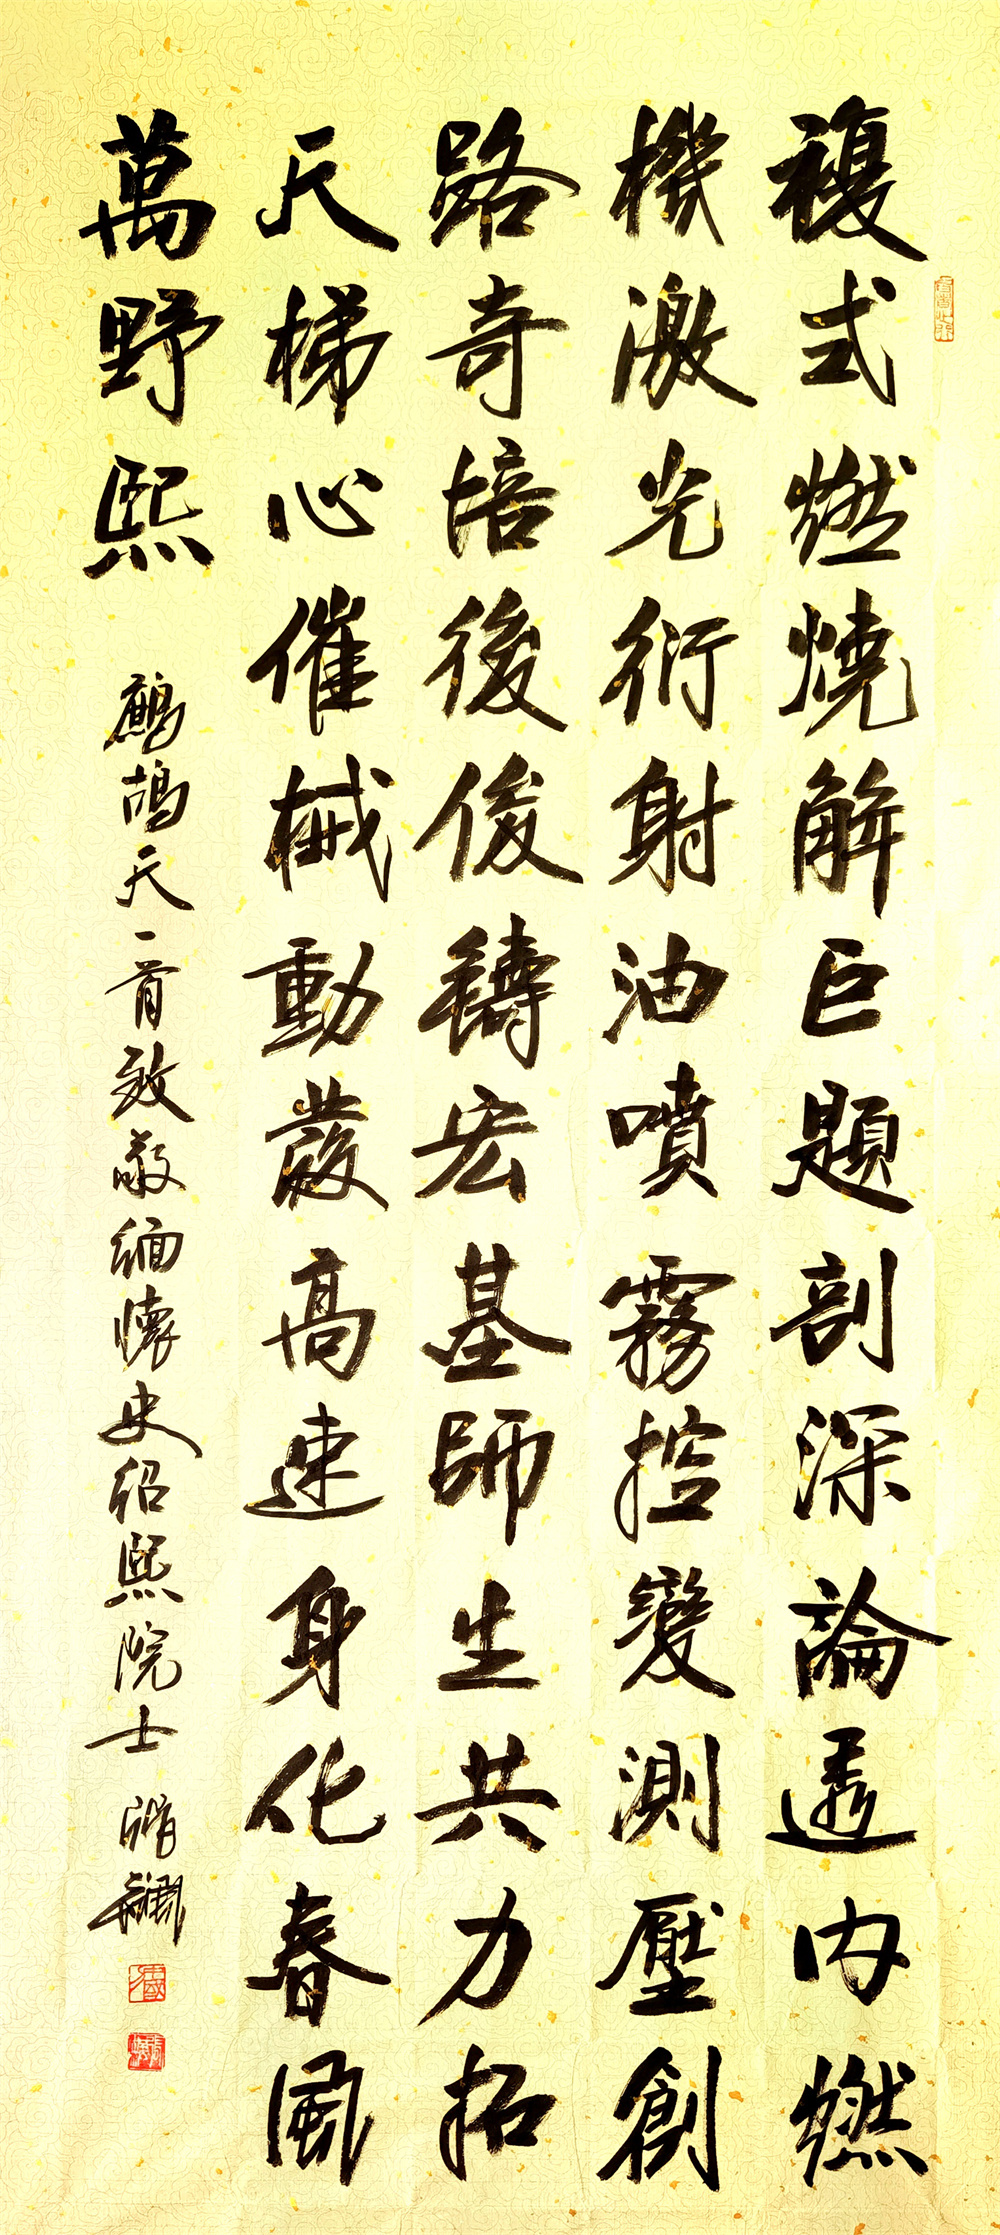 複式燃燒解巨題剖深論透內燃
機激光衍射油噴霧控變測壓創
路奇培後俊鑄宏基師生共力拓
天梯心催械動發高速身化春風
萬野熙
鷓鴣天一首致敬緬懷史紹熙院士